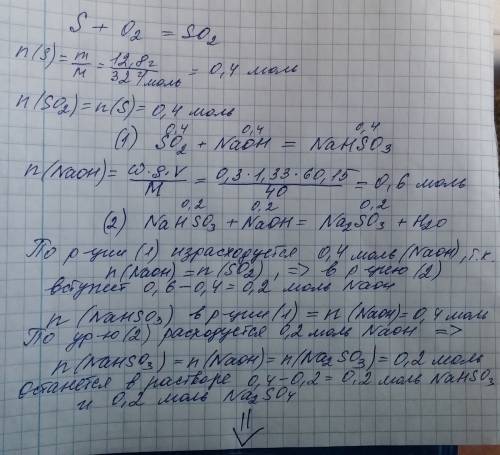 S + O2 = SO2
n(S) = m/M = 12,8г/32 г/моль = 0,4 моль
n(SO2) = n(S) = 0,4 моль
0,4 0,4 0,4
(1) SO2 + NaOH = NaHSO3
n(NaOH) = ω·ρ·V/M = 0,3·1,33·60,15/40 = 0,6 моль
0,2 0,2 0,2
(2) NaHSO3 + NaOH = Na2SO3 + H2O
По р-ции (1) израсходуется 0,4 моль (NaOH), т.к.
n(NaOH) = n(SO2), => в р-цию (2)
вступет 0,6-0,4=0,2 моль NaOH
n(NaHSO3) в р-ции (1) = n(NaOH) = 0,4 моль
По ур-ю (2) расходуется 0,2 моль NaOH =>
n(NaHSO3) = n(NaOH) = n(Na2SO3) = 0,2 моль
Останется в растворе 0,4-0,2=0,2 моль NaHSO3
и 0,2 моль Na2SO4